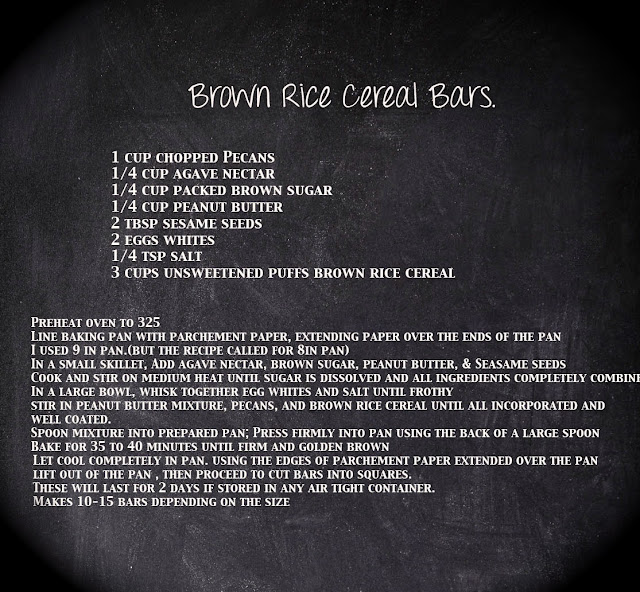 Brown Rice Cereal Bars.
1 cup chopped Pecans
1/4 cup agave nectar
1/4 cup packed brown sugar
1/4 cup peanut butter
2 tbsp sesame seeds
2 eggs whites
1/4 tsp salt
3 cups unsweetened puffs brown rice cereal
Preheat oven to 325
Line baking pan with parchement paper, extending paper over the ends of the pan
I used 9 in pan.(but the recipe called for 8in pan)
In a small skillet, Add agave nectar, brown sugar, peanut butter, & Seasame seeds
Cook and stir on medium heat until sugar is dissolved and all ingredients completely combine
In a large bowl, whisk together egg whites and salt until frothy
stir in peanut butter mixture, pecans, and brown rice cereal until all incorporated and
well coated.
Spoon mixture into prepared pan; Press firmly into pan using the back of a large spoon
Bake for 35 to 40 minutes until firm and golden brown
Let cool completely in pan. using the edges of parchement paper extended over the pan
lift out of the pan , then proceed to cut bars into squares.
These will last for 2 days if stored in any air tight container.
Makes 10-15 bars depending on the size